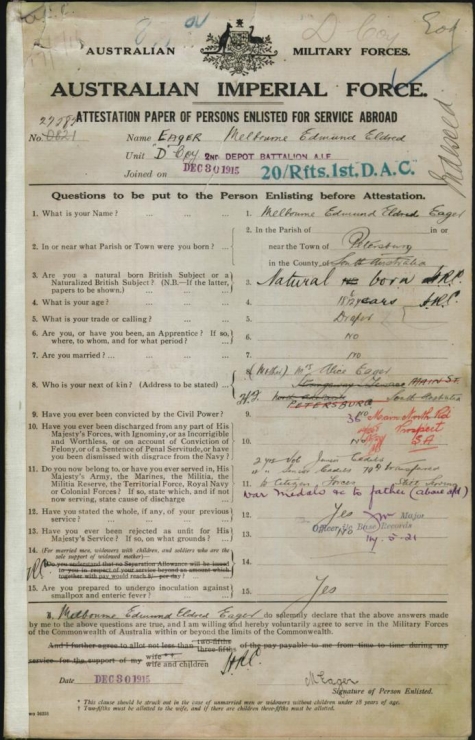 D Coy
AUSTRALIAN MILITARY FORCES.
AUSTRALIAN IMPERIAL FORCE.
ATTESTATION PAPER OF PERSONS ENLISTED FOR SERVICE ABROAD
No. Name EAGER Melbourne Edmund Eldred
Unit D Coy 2ND DEPOT BATTALION A.I.F.
Joined on DEC 30 1915 20/Rfts. 1st. D.A.C.
Indexed
Questions to be put to the Person Enlisting before Attestation.
1. What is your Name? ... 1. Melbourne Edmund Eldred Eager
2. In or near what Parish or Town were you born? ... 2. In the Parish of in or
near the Town of Petersburg
in the County of South Australia
3. Are you a natural born British Subject or a
Naturalized British Subject? (N.B.—If the latter,
papers to be shown.) 3. Natural born
4. What is your age? ... 4. years
5. What is your trade or calling? ... 5. Draper
6. Are you, or have you been, an Apprentice? If so,
where, to whom, and for what period? 6. No
7. Are you married? ... 7. No
8. Who is your next of kin? (Address to be stated) ... 8. (Mother) Mrs Alice Eager
MAIN ST.
PETERSBURG South Australia
Main North Rd
Prospect
SA
9. Have you ever been convicted by the Civil Power? 9.
10. Have you ever been discharged from any part of His
Majesty's Forces, with Ignominy, or as Incorrigible
and Worthless, or on account of Conviction of
Felony, or of a Sentence of Penal Servitude, or have
you been dismissed with disgrace from the Navy? 10. No
11. Do you now belong to, or have you ever served in, His
Majesty's Army, the Marines, the Militia, the
Militia Reserve, the Territorial Force, Royal Navy
or Colonial Forces? If so, state which, and if not
now serving, state cause of discharge 11. 2 yrs Vol. Junr Cadets
" Senior Cadets
Citizen Forces
War Medals &c to father (above add)
12. Have you stated the whole, if any, of your previous
service? 12. Yes
Major
Officer i/c Base Records
13. Have you ever been rejected as unfit for His
Majesty's Service? If so, on what grounds? 13.
14. (For married men, widowers with children, and soldiers who are the
sole support of widowed mother)—
Do you understand that no Separation Allowance will be issued
to you in respect of your service beyond an amount which
together with pay would reach 8/- per day? 14.
15. Are you prepared to undergo inoculation against
smallpox and enteric fever? 15. Yes
I, Melbourne Edmund Eldred Eager do solemnly declare that the above answers made
by me to the above questions are true, and I am willing and hereby voluntarily agree to serve in the Military Forces
of the Commonwealth of Australia within or beyond the limits of the Commonwealth.
And I further agree to allot not less than two-fifths three-fifths of the pay payable to me from time to time during my
service for the support of my wife** wife and children
Date DEC 30 1915 M Eager
Signature of Person Enlisted.
* This clause should be struck out in the case of unmarried men or widowers without children under 18 years of age.
† Two-fifths must be allotted to the wife, and if there are children three-fifths must be allotted.